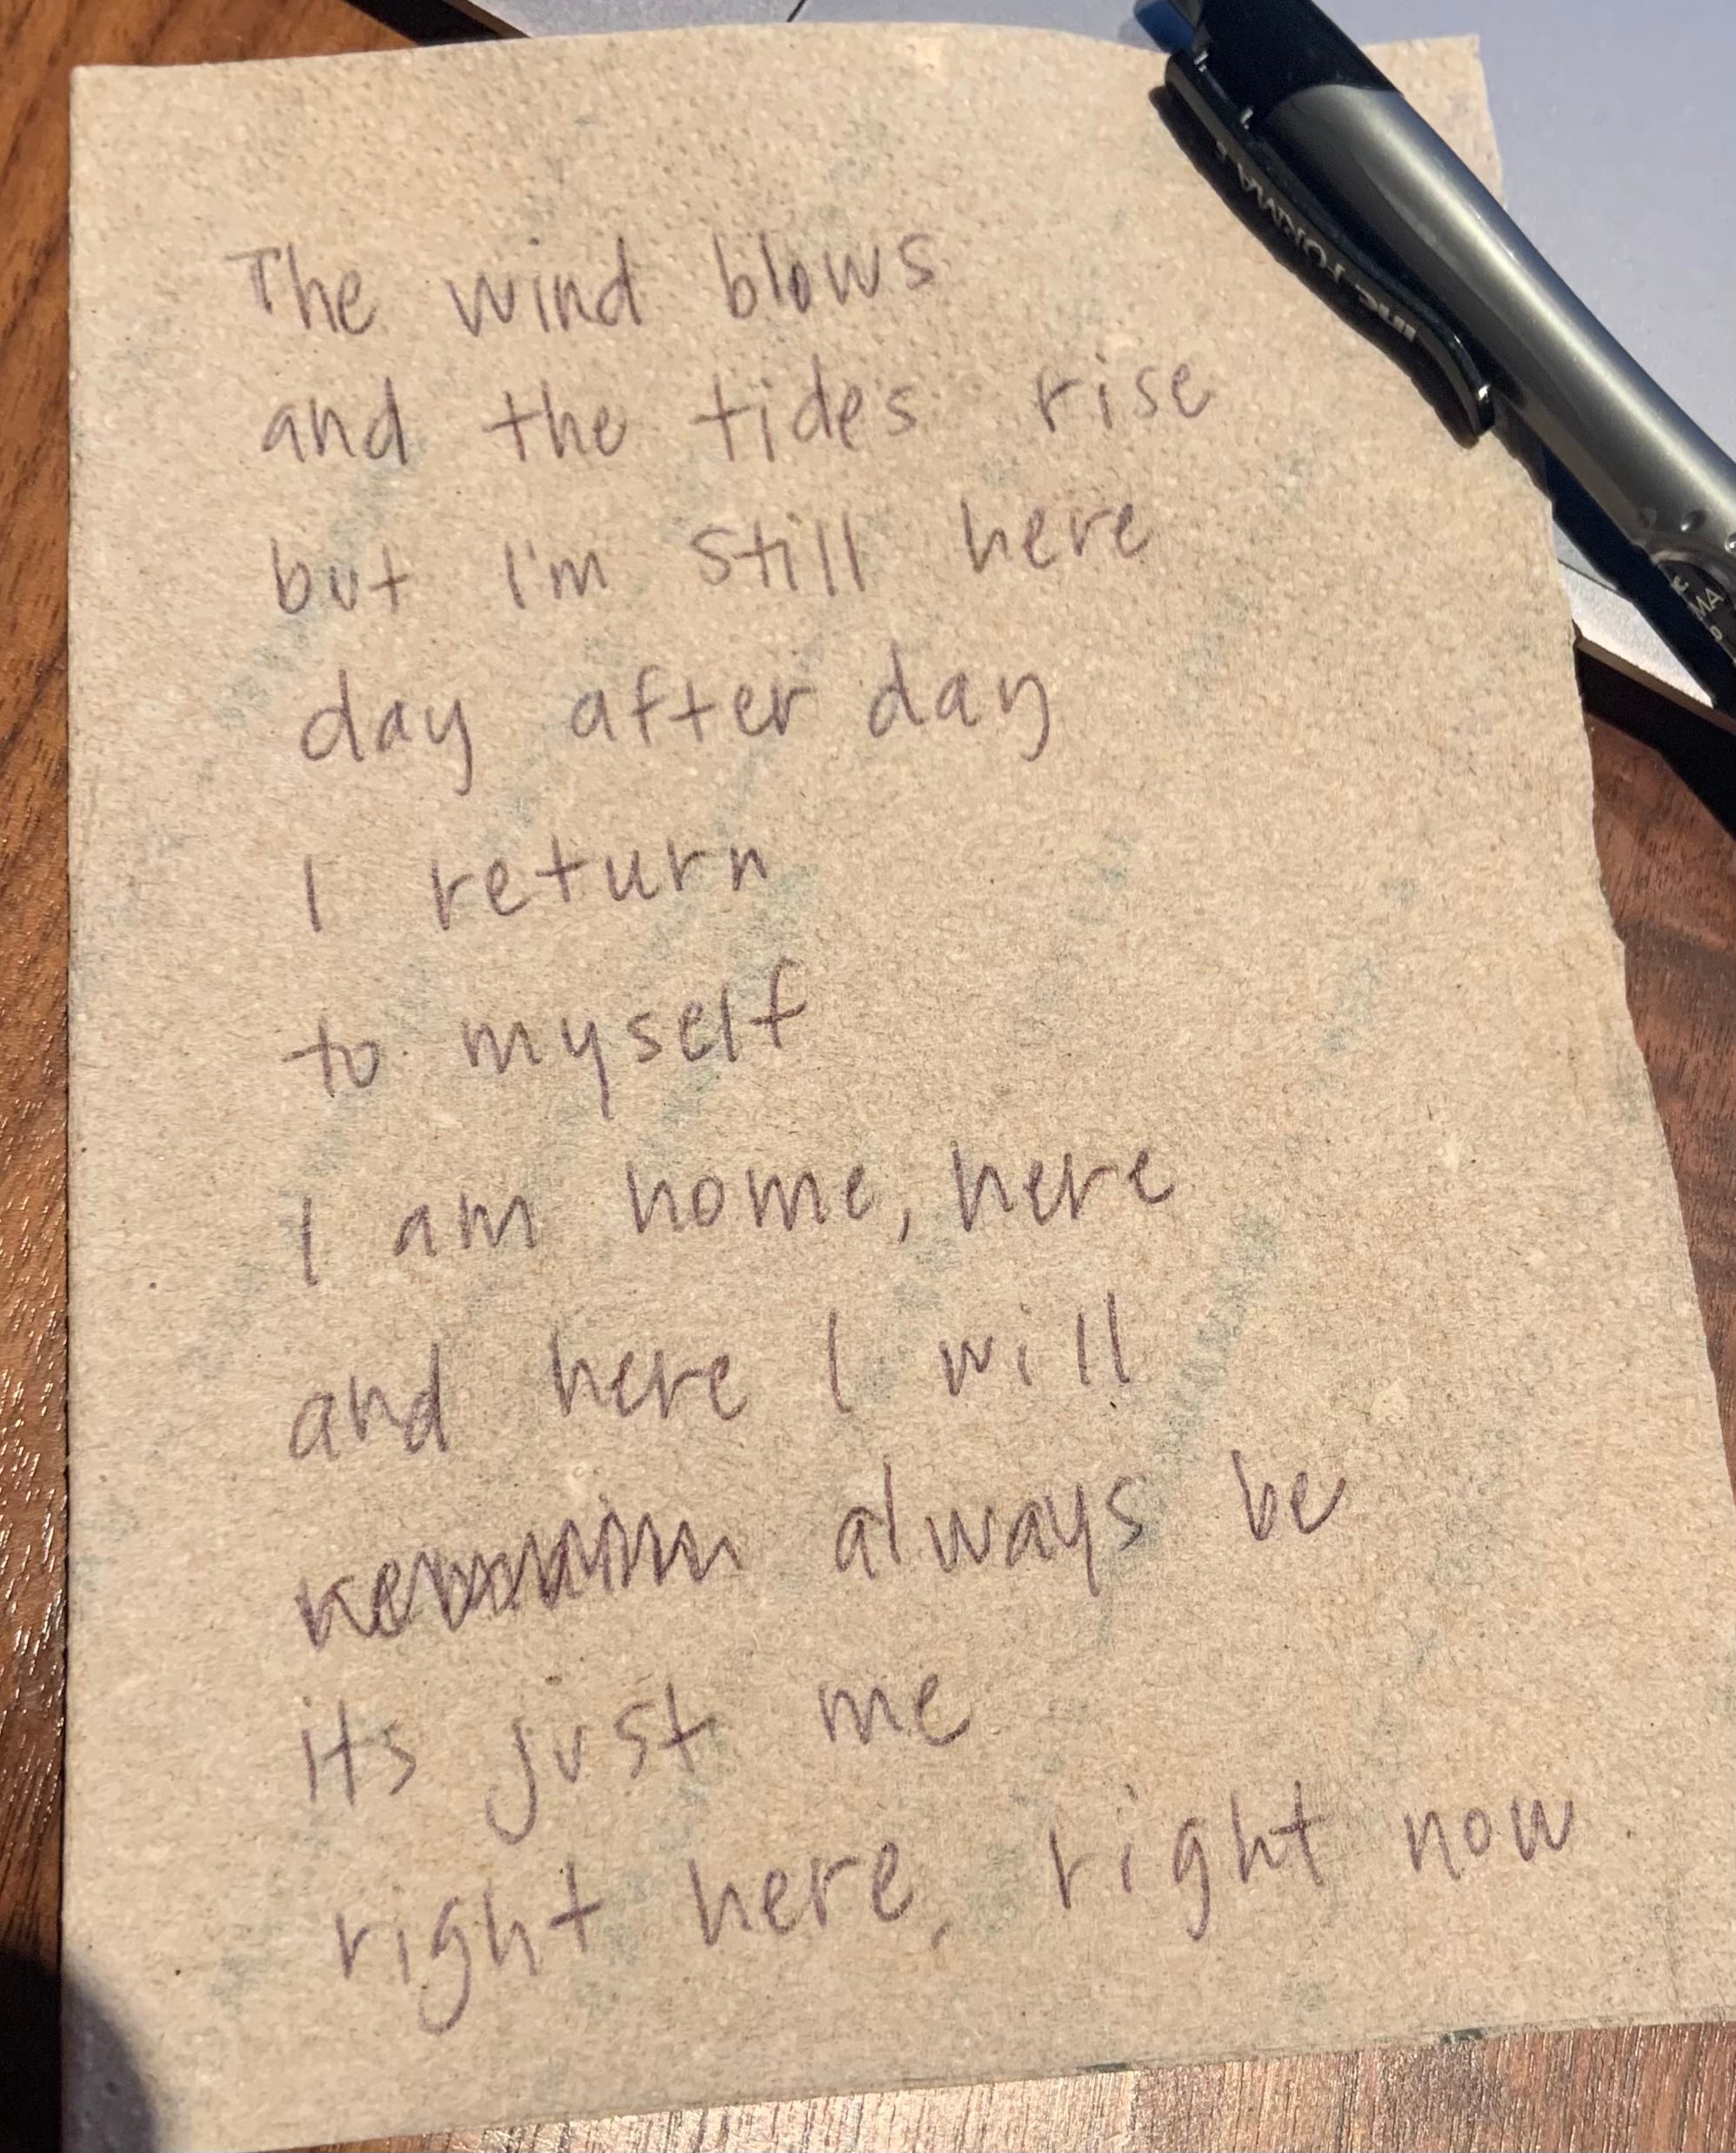 The wind blows
and the tides rise
but I'm still here
day after day
I return
to myself
I am home, here
and here I will
always be
its just me
right here, right now
THE FORMA